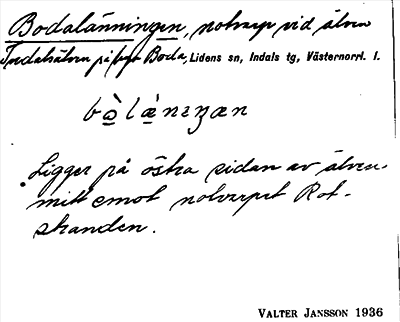 Bodalänningen, notvarp vid älven
Indalsälven på byn Boda, Lidens sn, Indals tg, Västernorrl. l.
bò̲lænıŋæn
Ligger på östra sidan av älven
mitt emot notvarpet Rot-
stranden.
VALTER JANSSON 1936